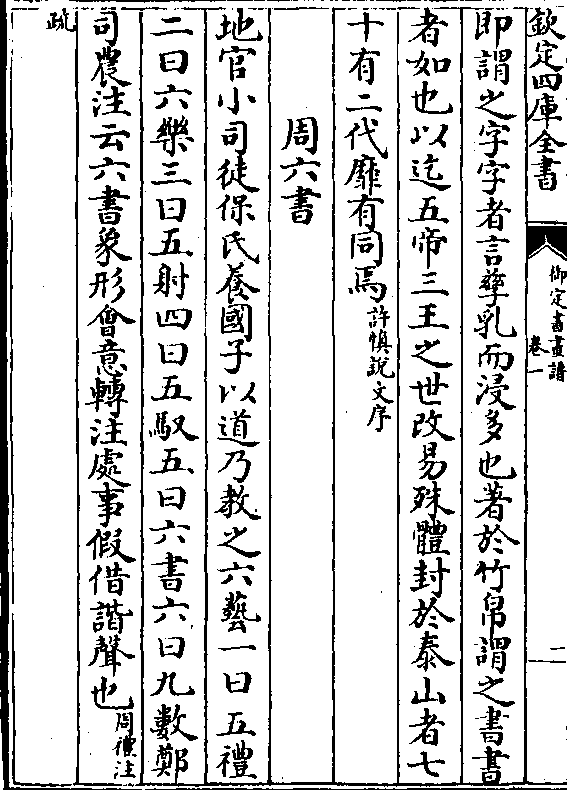 欽定四庫全書
御定書畫譜
卷一
二
即謂之字字者言孳乳而浸多也著於竹帛謂之書書
者如也以迄五帝三王之世改易殊體封於泰山者七
十有二代靡有同焉許愼說文序
周六書
地官小司徒保氏養國子以道乃教之六藝一曰五禮
二曰六樂三曰五射四曰五馭五曰六書六曰九數鄭
司農注云六書象形會意轉注處事假借諧聲也周禮注
疏